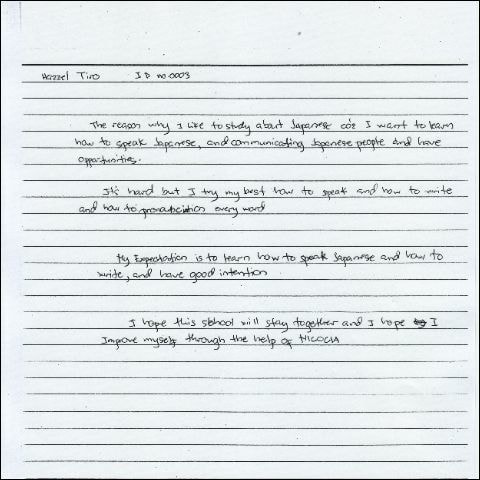 Hazzel Tiro ID no 0003
The reason why I like to study about Japanese coz I want to learn
how to speak Japanese, and communicating Japanese people and have
opportunities.
It's hard but I try my best how to speak and how to write
and how to pronounciation every word
My Expectation is to learn how to speak Japanese and how to
write, and have good intention
I hope this school will stay together and I hope I
Improve myself through the help of NICOCIA